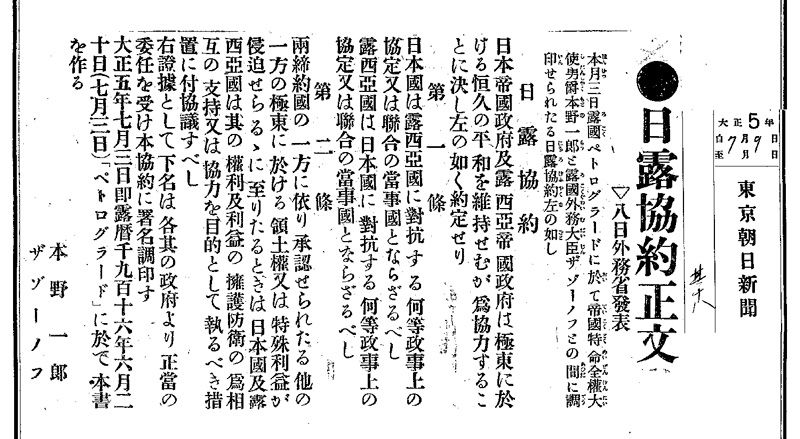 大正5年
自7月9日
至 月 日
東京朝日新聞
●日露協約正文
▽八日外務省發表
本月三日露國ペトログラードに於て帝國特命全權大
使男爵本野一郎と露國外務大臣ザゾーノフとの間に調
印せられたる日露協約左の如し
日露協約
日本帝國政府及露西亞帝國政府は極東に於
ける恒久の平和を維持せむが爲協力するこ
とに決し左の如く約定せり
第一條
日本國は露西亞國に對抗する何等政事上の
協定又は聯合の當事國とならざるべし
露西亞國は日本國に對抗する何等政事上の
協定又は聯合の當事國とならざるべし
第二條
兩締約國の一方に依り承認せられたる他の
一方の極東に於ける領土權又は特殊利益が
侵迫せらるゝに至りたるときは日本國及露
西亞國は其の權利及利益の擁護防衛の爲相
互の支持又は協力を目的として執るべき措
置に付協議すべし
右證據として下名は各其の政府より正當の
委任を受け本協約に署名調印す
大正五年七月三日即露暦千九百十六年六月二
十日(七月三日)「ペトログラード」に於て本書
を作る
本野一郎
ザゾーノフ